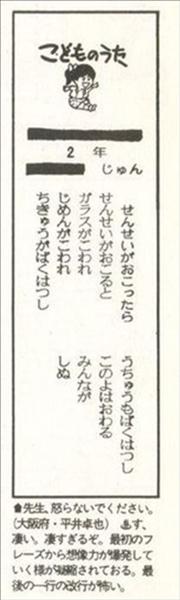 こどものうた
2 年
じゅん
せんせいがおこったら
せんせいがおこると
ガラスがこわれ
じめんがこわれ
ちきゅうがばくはつし
うちゅうもばくはつし
このよはおわる
みんなが
しぬ
先生、怒らないでください。
(大阪府・平井卓也) ♨す、
凄い。凄すぎるぞ。最初のフ
レーズから想像力が爆発して
いく様が凝縮されておる。最
後の一行の改行が怖い。